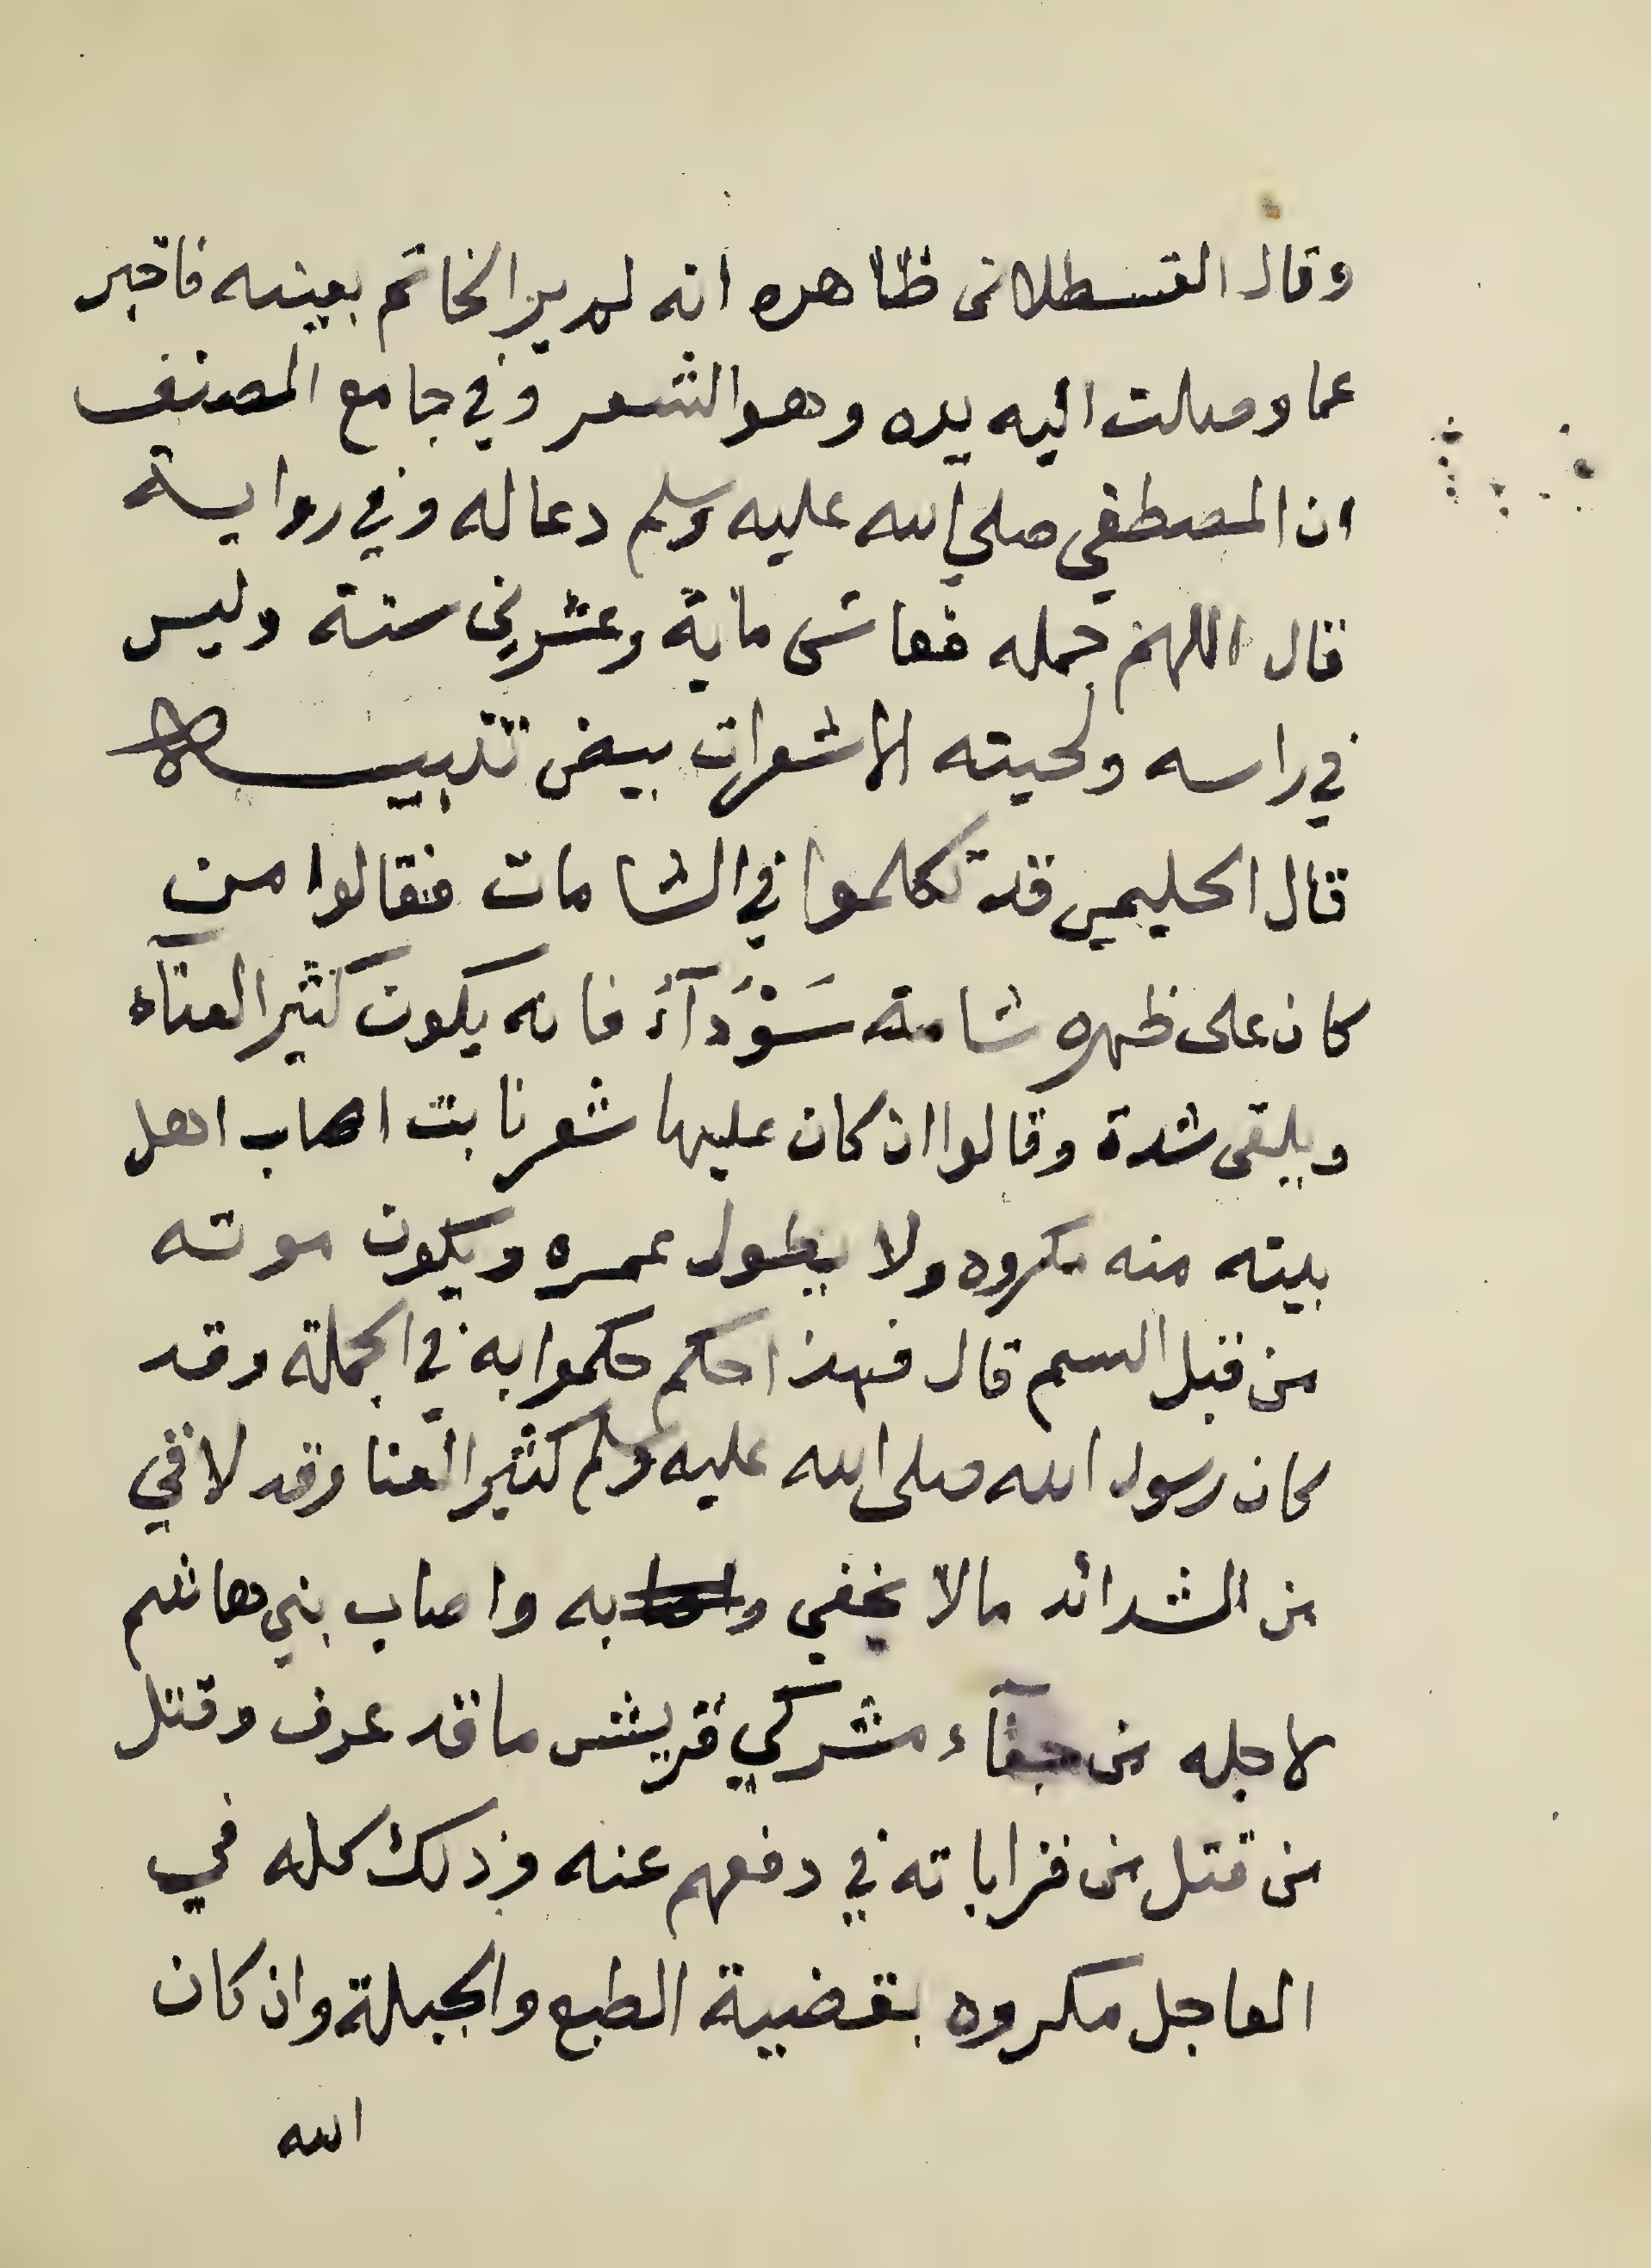 وقال القسطلانى ظاهره انه لم ير الخاتم بعينه فاخبر
عما وصلت اليه يده وهو الشعر وفي جامع المصنف
ان المصطفي صلي الله عليه وسلم دعا له وفي رواية
قال اللهم جمله فعاش ماية وعشرين سنة وليس
في راسه ولحيته الا شعرات بيض تنبيه
قال الحليمي قد تكلموا في الشامات فقالوا من
كان على ظهره شامة سَوْدَآءُ فانه يكون كثير العنآء
ويلقى شدة وقالوا ان كان عليها شعر نابت اصاب اهل
بيته منه مكروه ولا يطول عمره ويكون موته
من قبل السم قال فهذا حكم حكموا به في الجملة وقد
كان رسول الله صلى الله عليه وسلم كثير العنا وقد لاقي
من الشدائد مالا يخفي و به واصاب بني هاشم
لاجله من جفآء مشركي قريش ما قد عرف وقتل
من قتل من قراباته في دفعهم عنه وذلك كله في
العاجل مكروه بقضية الطبع والجبلة وان كان
الله